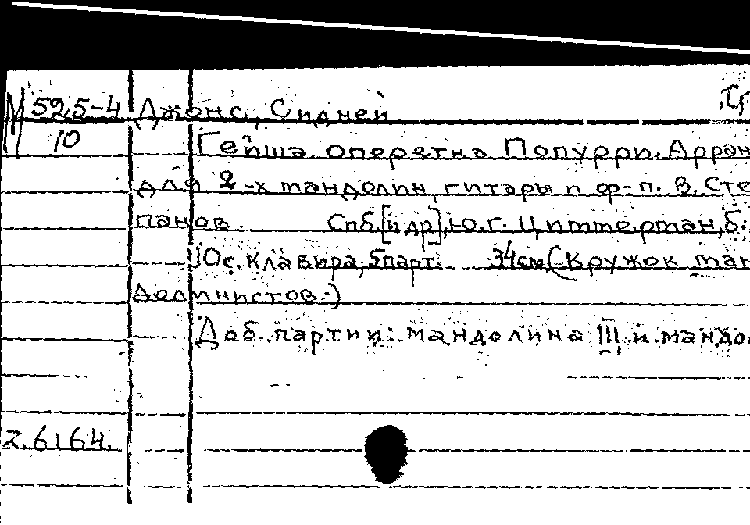 М 525-4 Джонс, Сидней
10 Гейша. Оперетка Попурри. Арран
для 2-х мандолин, гитары и ф-п. В. Сте
панов Спб. [и др.], Ю. Г. Циммерман, б.
10 с. клавира, 5 парт. 34 см (Кружок ман
долинистов.)
Доб. партии: мандолина III и мандо
2.6164.